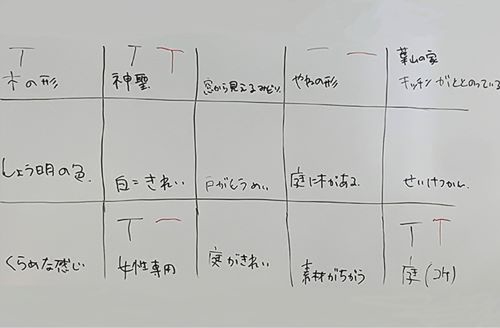 木の形
神聖
窓から見えるみどり
やねの形
葉山の家
キッチンがととのっている
しょう明の色
白=きれい
戸がとうめい
庭に木がある
せいけつかん
くらめな感じ
女性専用
庭がきれい
素材がちがう
庭(コケ)